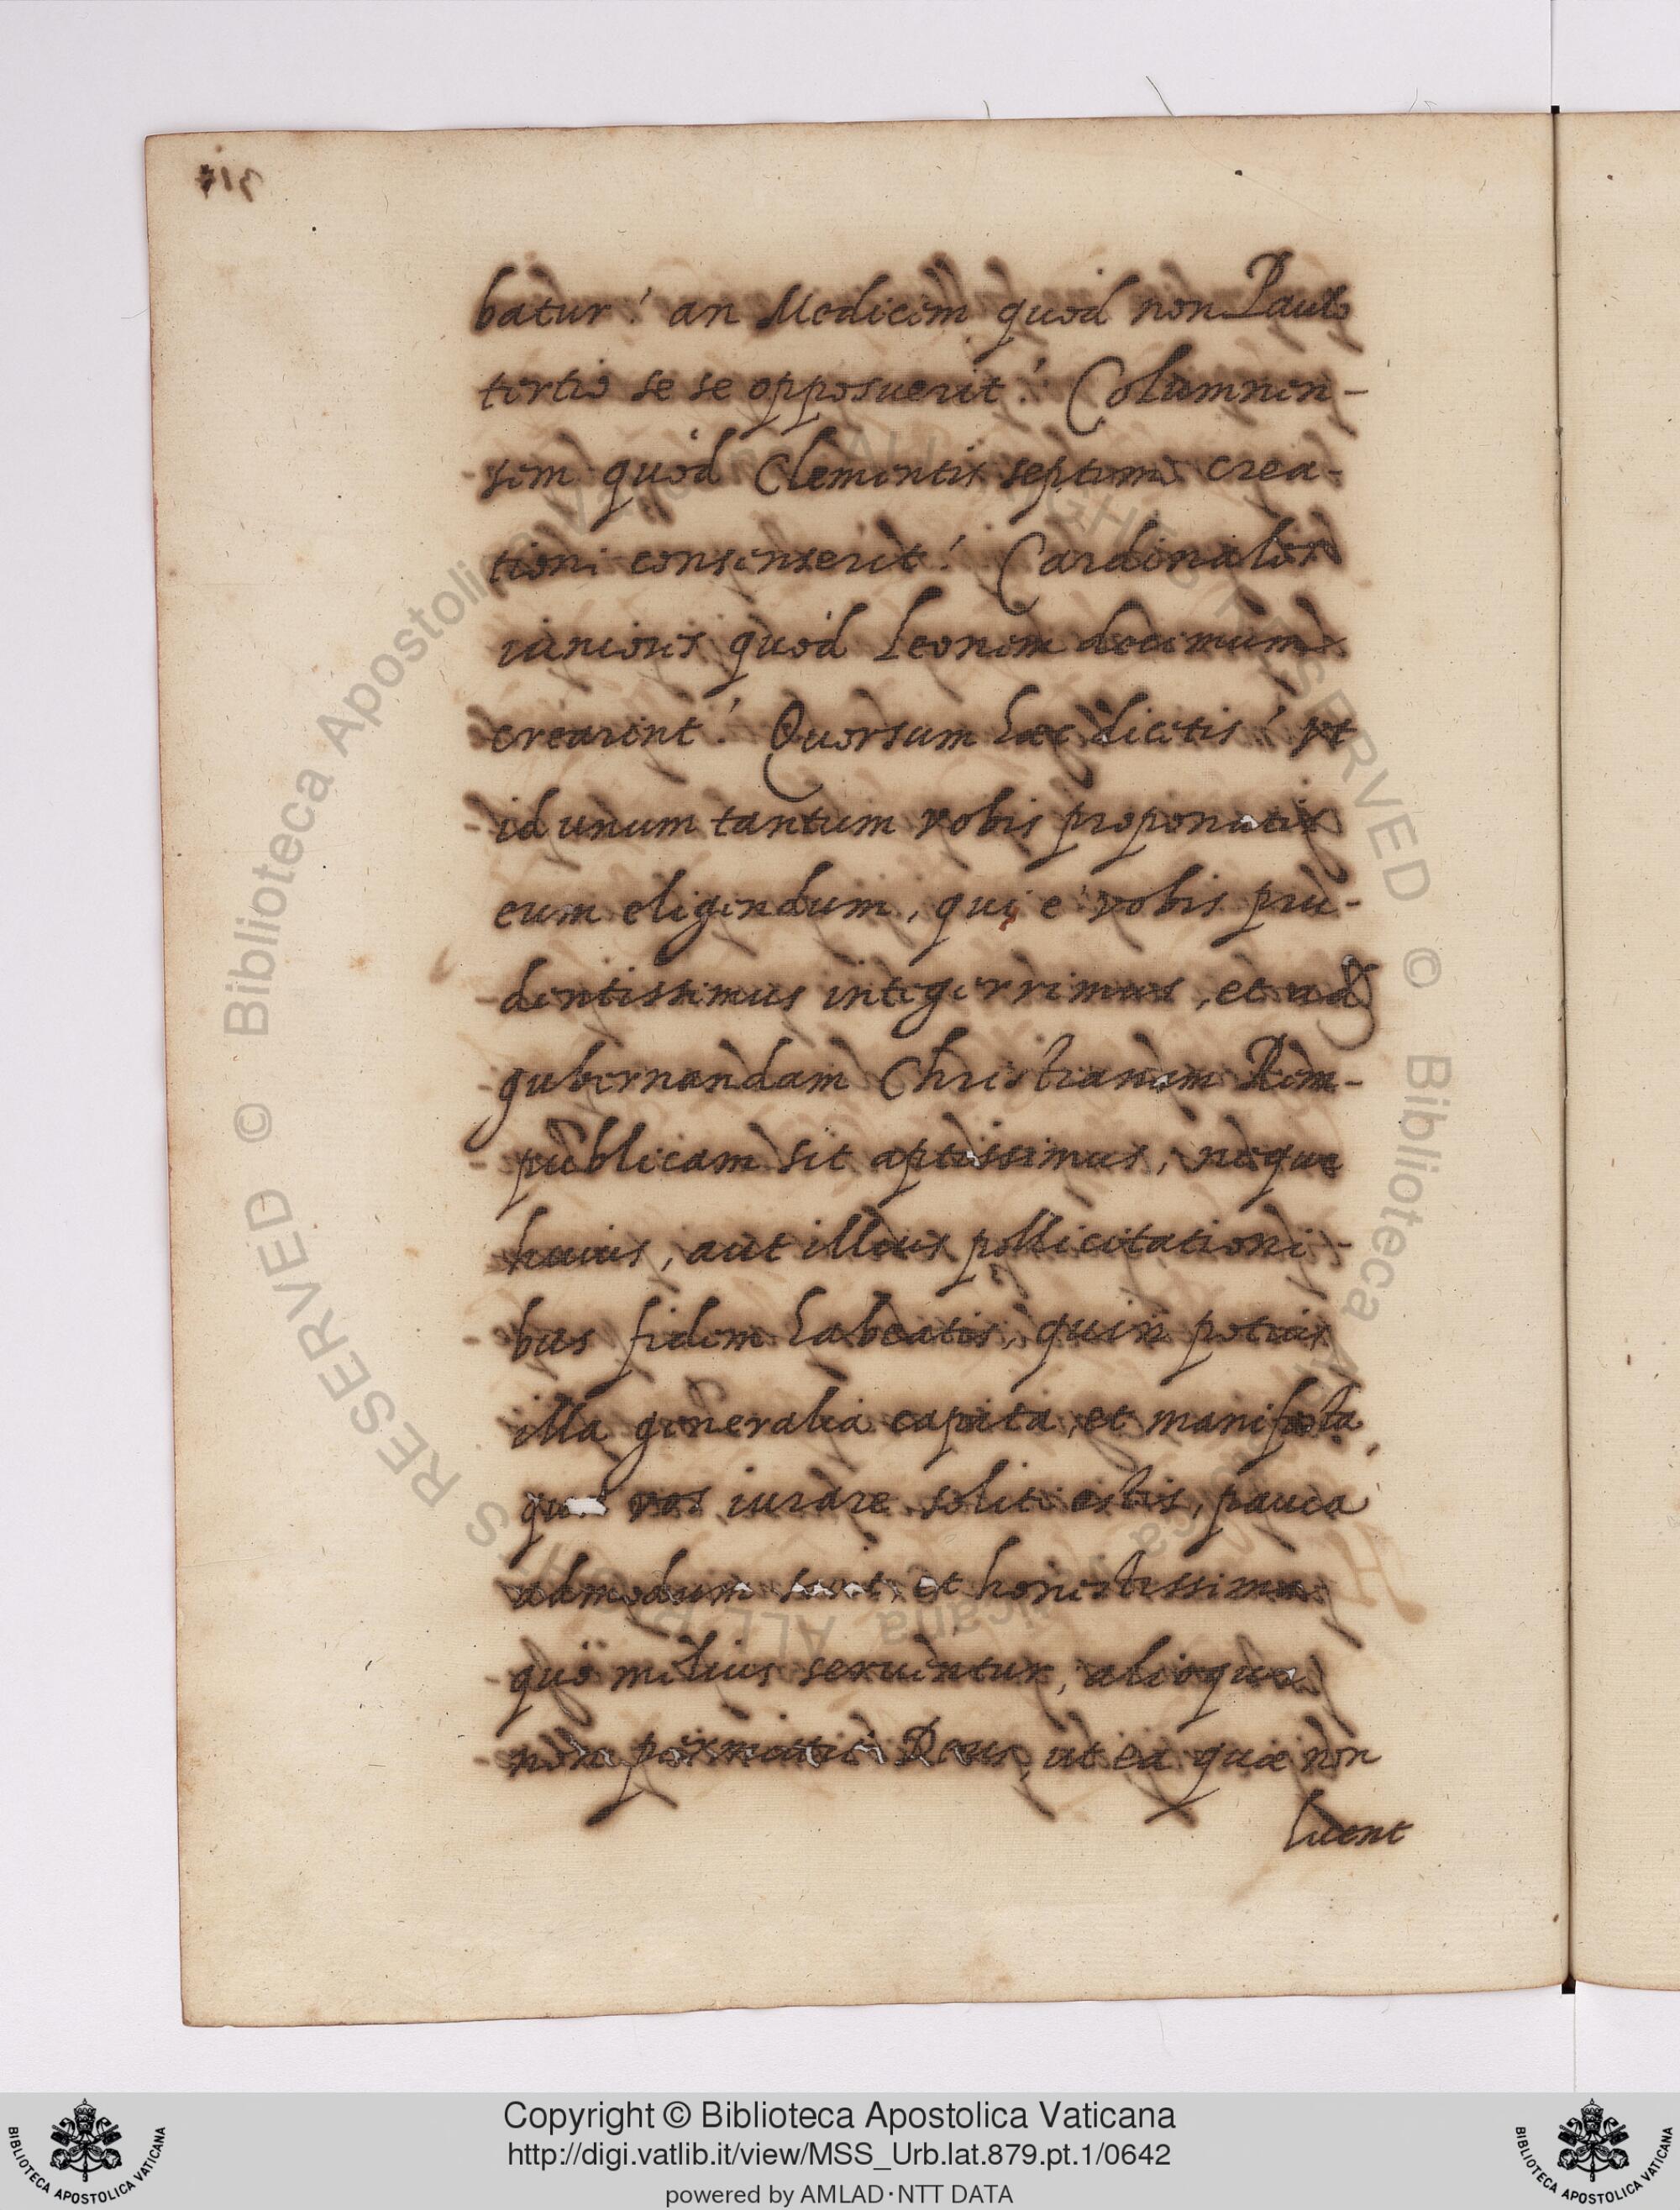 batur? an Medicem quod non Paulo
tertio se se opposuerit? Columnen-
sem quod Clementis septimi crea-
tioni consenserit? Cardinales
iuniores quod Leonem decimum
crearint? Quorsum haec dicitis? vt
id unum tantum vobis proponatis
eum eligendum, qui è vobis pru-
dentissimus integerrimus, et ad
gubernandam Christianam Rem-
publicam sit aptissimus, neque
huius, aut illius pollicitationi-
bus fidem habeatis, quin potius
illa generalia capita, et manifesta
quae vos iurare soliti estis, pauca
admodum sint et honestissima
quò melius seruentur, alioqui
non permittet Deus, ut ea quae non
licent
Copyright © Biblioteca Apostolica Vaticana
http://digi.vatlib.it/view/MSS_Urb.lat.879.pt.1/0642
powered by AMLAD·NTT DATA
BIBLIOTECA APOSTOLICA VATICANA
BIBLIOTECA APOSTOLICA VATICANA